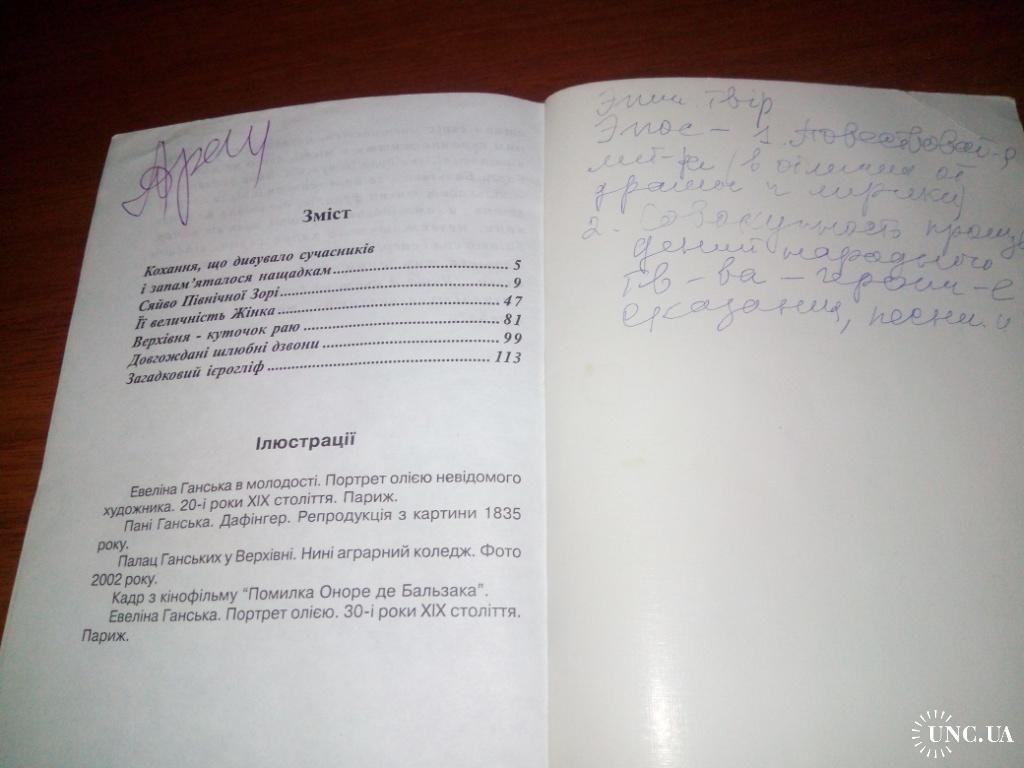 Зміст
Кохання, що дивувало сучасників
і запам’яталося нащадкам 5
Сяйво Північної Зорі 9
Її величність Жінка 47
Верхівня - куточок раю 81
Довгождані шлюбні дзвони 99
Загадковий ієрогліф 113
Ілюстрації
Евеліна Ганська в молодості. Портрет олією невідомого
художника. 20-і роки XIX століття. Париж.
Пані Ганська. Дафінгер. Репродукція з картини 1835
року.
Палац Ганських у Верхівні. Нині аграрний коледж. Фото
2002 року.
Кадр з кінофільму “Помилка Оноре де Бальзака”.
Евеліна Ганська. Портрет олією. 30-і роки XIX століття.
Париж.
твір
Эпос - 1.
лит-ра (в отличие от
драмы и лирики)
2. Совокупность произве
дений народного
тв-ва - героич-е
сказания, песни и
UNC.UA